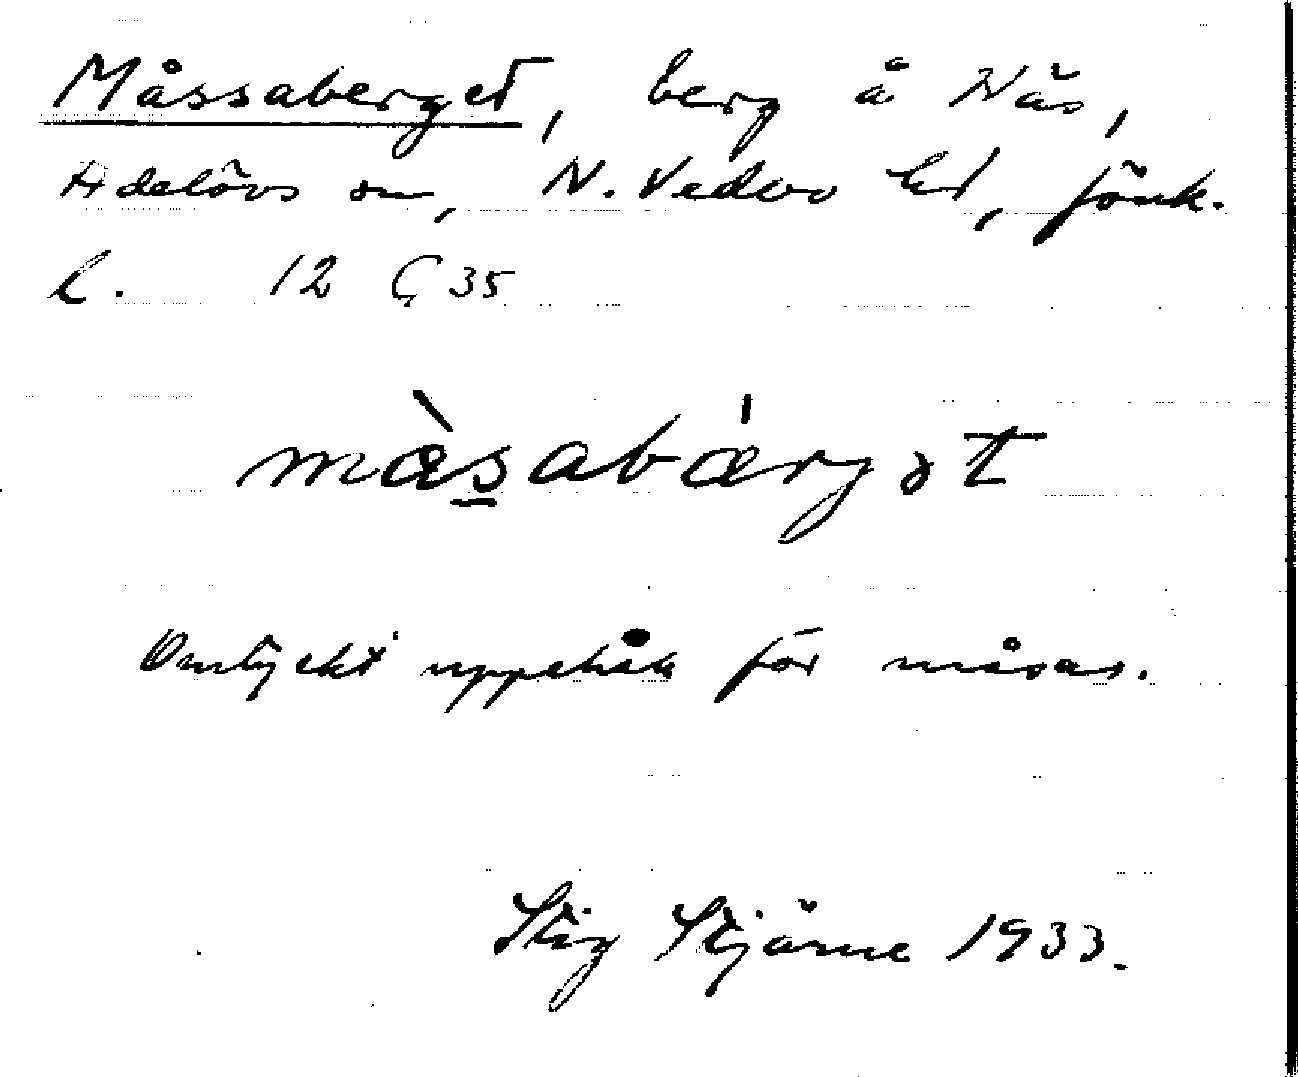 Måssaberget, berg å Näs,
Adelövs sn, N. Vedbo hd, Jönk.
l. 12 G 35
mæ̀s̠abæ̍rgət
Omtyckt uppehåll för måsar.
Stig Stjärne 1933.